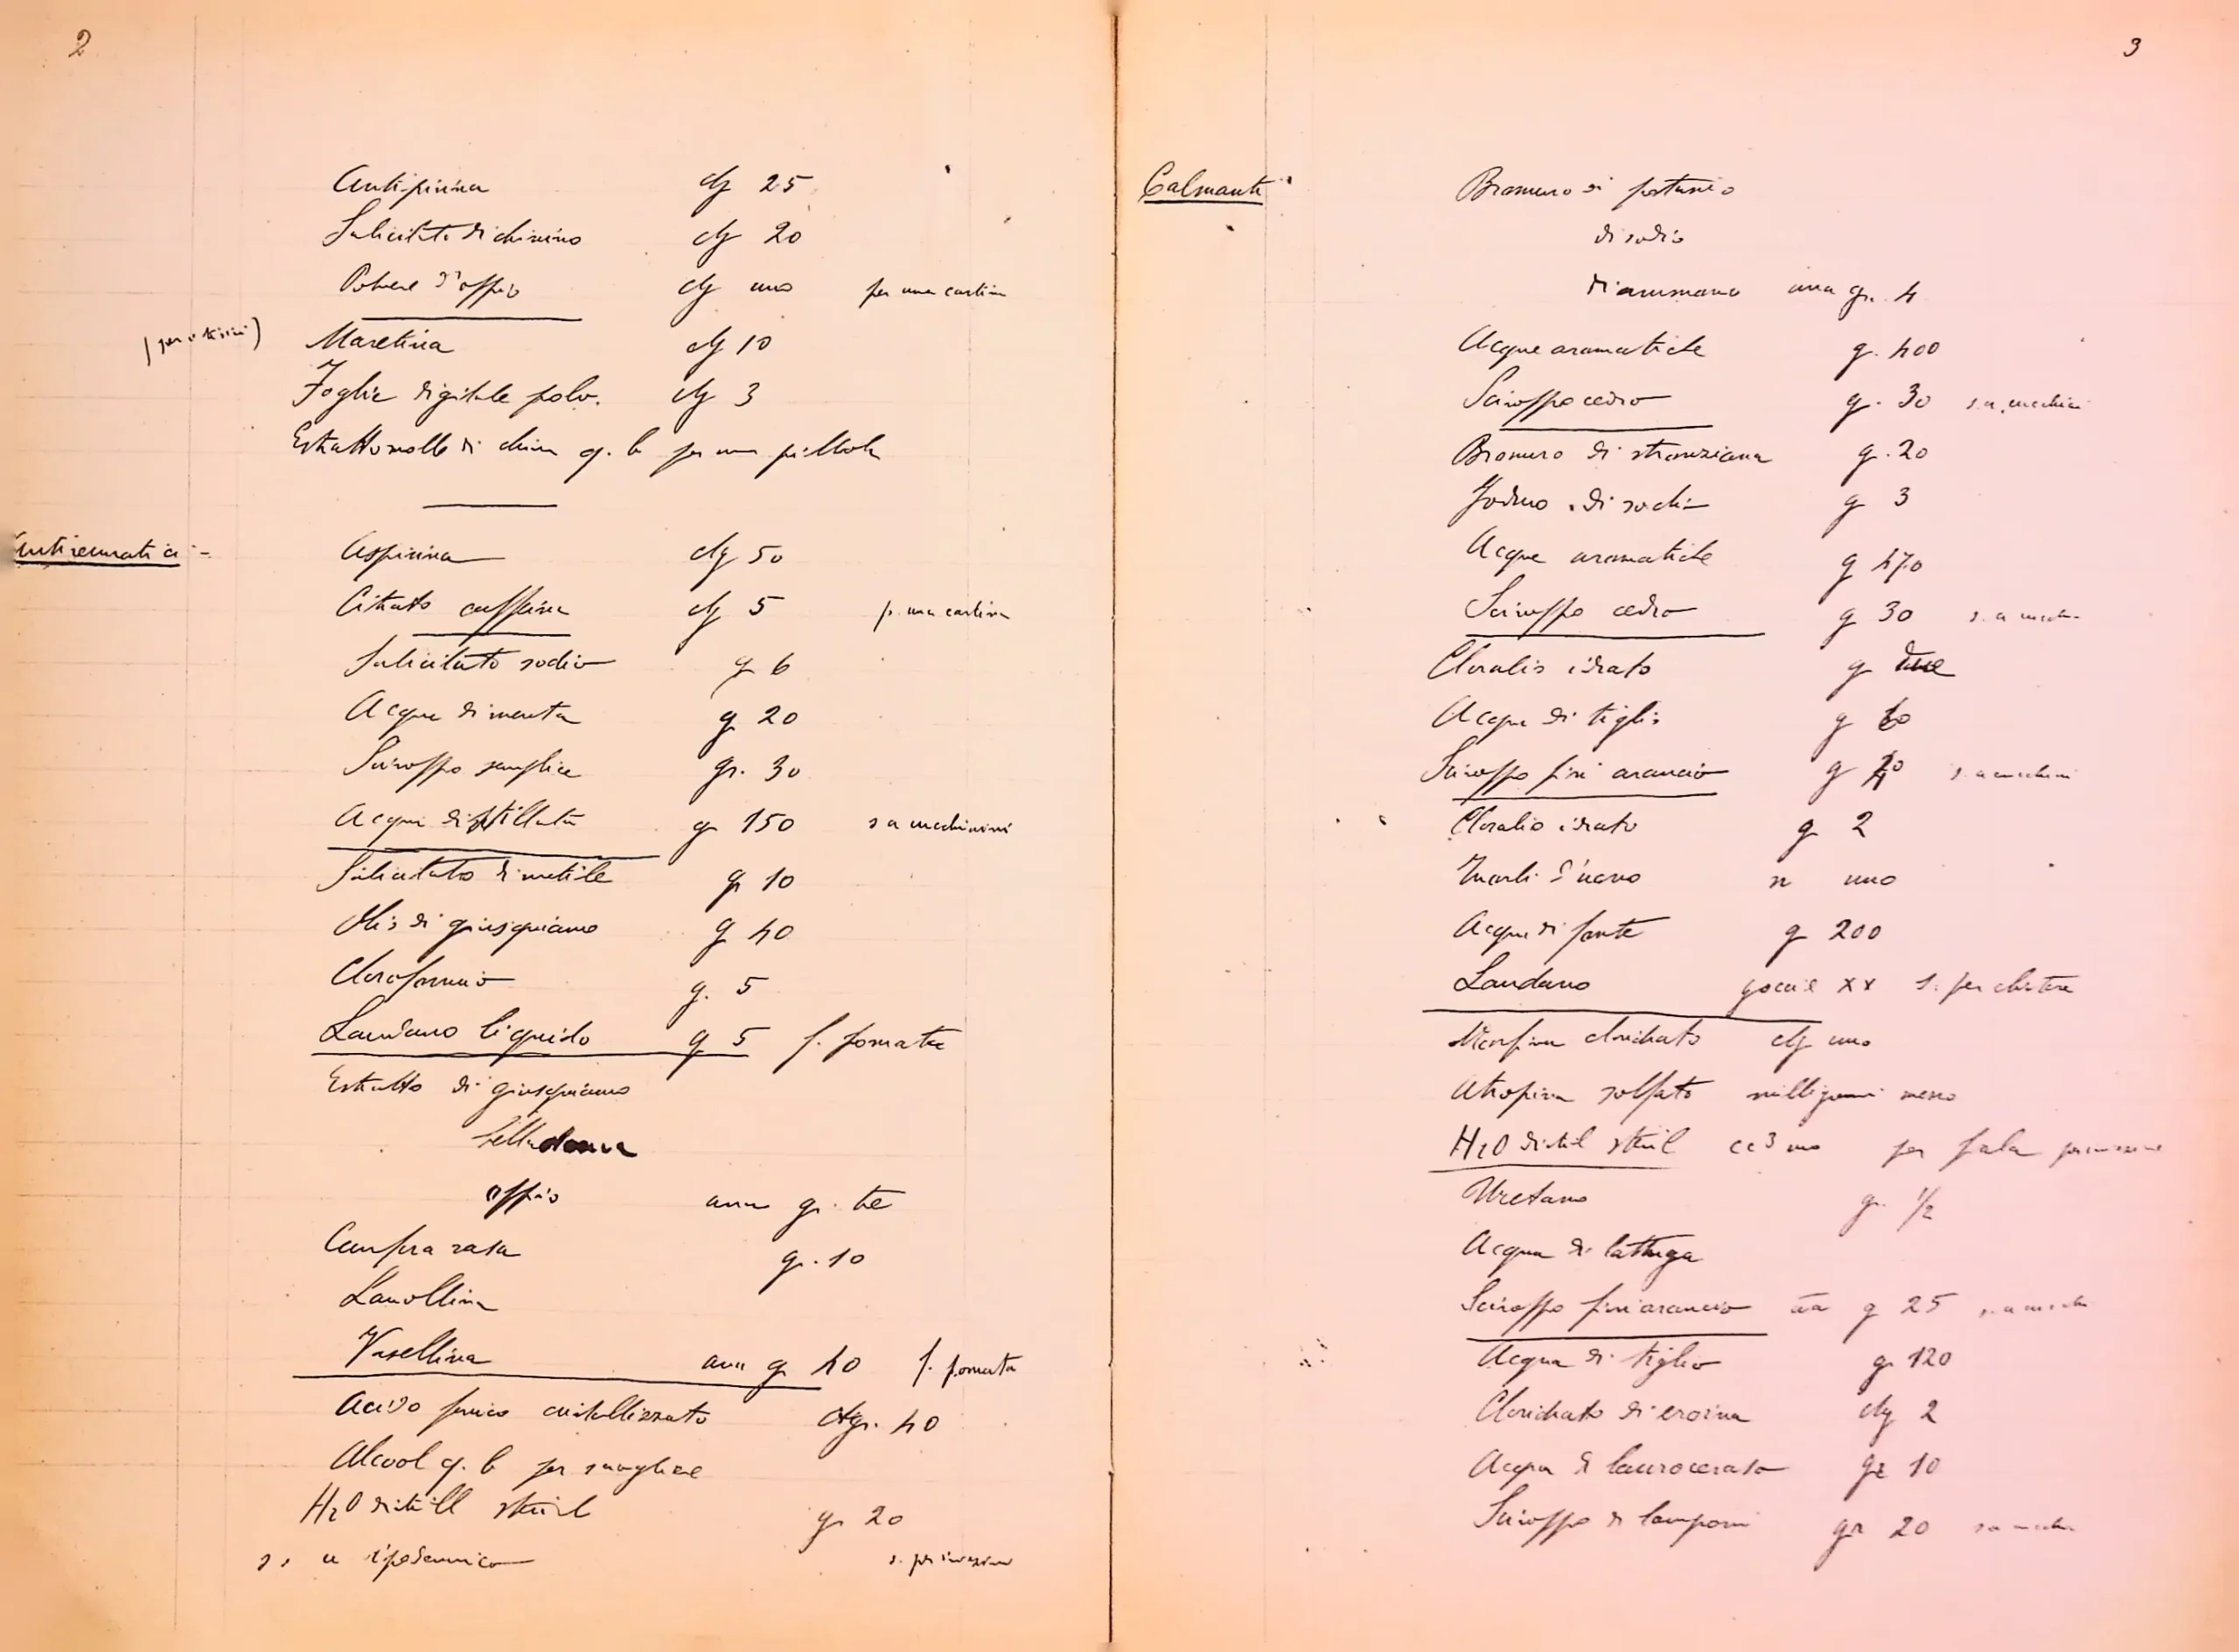 2
Antipirina cg 25
Salicilato di chinino cg 20
Polvere d'oppio cg uno per una cartina
(per i tisici) Maretina cg 10
Foglie digitale polv. cg 3
Estratto molle di china q. b per una pillola
Antireumatici - Aspirina cg 50
Citrato caffeina cg 5 p. una cartina
Salicilato sodio g 6
Acqua di menta g 20
Sciroppo semplice gr. 30
Acqua distillata g 150 s a cucchiaini
Salicilato di metile g 10
Olio di giusquiamo g 40
Cloroformio g. 5
Laudano liquido g 5 f. pomata
Estratto di giusquiamo
belladonna
oppio ana gr. tre
Canfora rasa gr. 10
Lanollina
Vasellina ana g 40 f. pomata
Acido fenico cristallizzato ctgr. 40
Alcool q. b per sciogliere
H2O distill steril g 20
s. a ipodermica s. per iniezioni
3
Calmanti Bromuro di potassio
di sodio
di ammonio ana gr. 4
Acque aromatiche g. 400
Sciroppo cedro g. 30 s. a. cucchiai
Bromuro di stronziana g. 20
Joduro di sodio g 3
Acque aromatiche g 470
Sciroppo cedro g 30 s. a cucch.
Cloralio idrato g due
Acqua di tiglio g 60
Sciroppo fiori arancio g s a cucchiai
Cloralio idrato g 2
Tuorli d'uovo n uno
Acqua di fonte g 200
Laudano goccie XX s. per clistere
Morfina cloridrato cg uno
Atropina solfato milligrammi mezzo
H2O distil steril cc3 uno per fiala per iniezione
Uretano gr. 1/2
Acqua di lattuga
Sciroppo fiori arancio āā g 25 s. a cucch
Acqua di tiglio g 120
Cloridrato di eroina cg 2
Acqua di lauroceraso gr 10
Sciroppo di lamponi gr 20 s a cucch